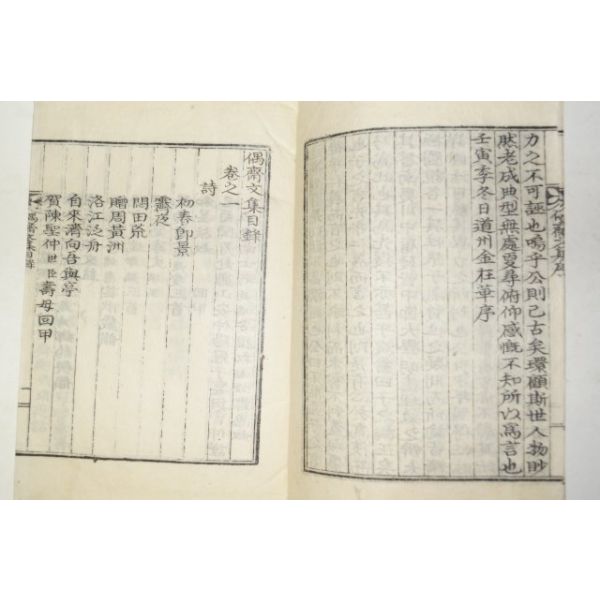 力之不可誣也嗚乎公則已古矣環顧斯世人物眇
然老成典型無處更尋俯仰感慨不知所以爲言也
壬寅季冬日道州金在華序
偶齋文集目錄
卷之一
詩
初春卽景
霽夜
閔田荒
贈周黃洲
洛江泛舟
自來濟向吾與亭
賀陳聖仲世臣壽母回甲
偶齋文集目錄